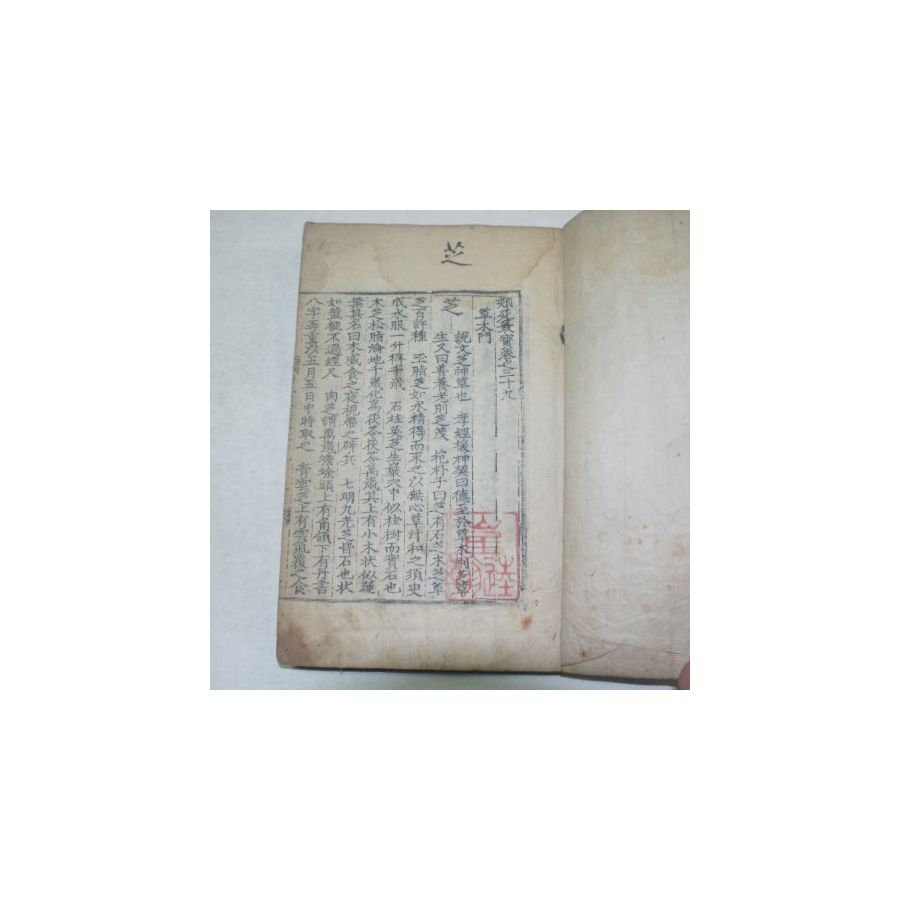 芝
類苑叢寶卷之三十九
草木門
芝
說文芝神草也 孝經援神契曰德至於草木則芝草
生又曰善養老則芝茂 抱朴子曰芝有石芝木芝草
芝百許種 玉脂芝如水精得而末之以無心草汁和之須臾
成水服一升得千歲 石桂英芝生巖穴中似桂樹而實石也
木芝松脂淪地千歲化爲茯苓茯苓萬歲其上有小木狀似蓮
葉其名曰木威食之夜視帶之辟兵 七明九光芝皆石也狀
如盤椀不過經尺 肉芝謂萬歲蟾蜍頭上有角頷下有丹書
八字再重以五月五日中時取之 靑雲芝上有雲氣覆之食